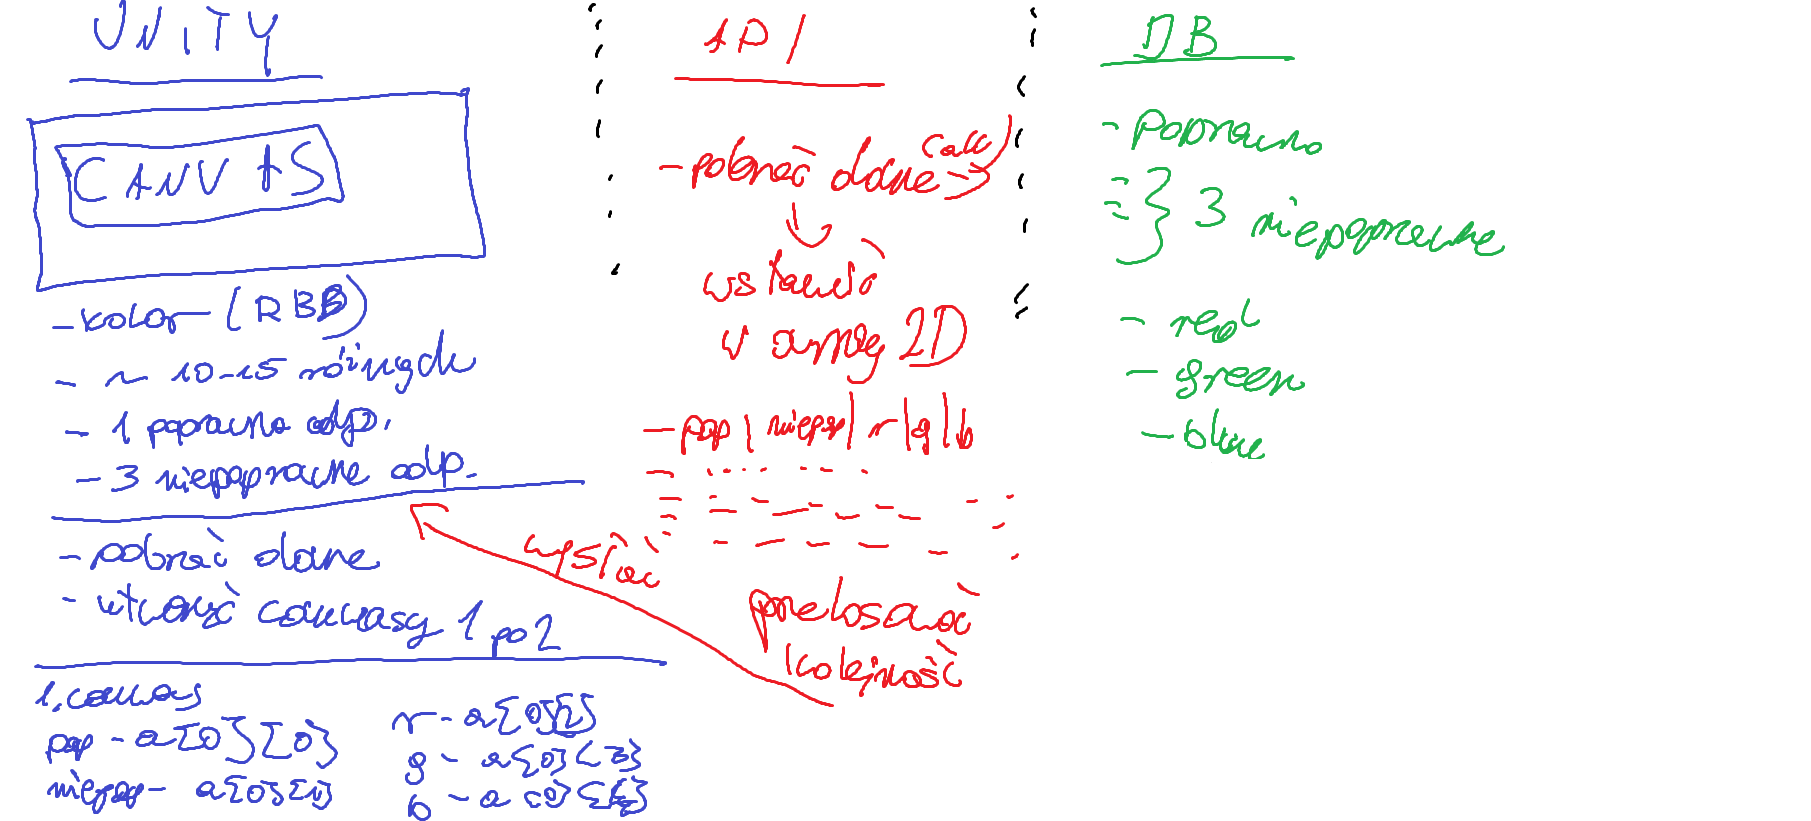 UNITY
CANVAS
- kolor (RBB)
- ~ 10-15 różnych
- 1 poprawna odp.
- 3 niepoprawne odp.
- pobrać dane
- utworzyć canvasy 1 po 2
1. canvas
pop - a[0][0]
niepop - a[0][1]
r - a[0][2]
g - a[0][3]
b - a[0][4]
API
- pobrać dane (całe)
wstawić
w array 2D
- pop | niepop | r | g | b
wysłać
przelosować
kolejność
DB
- poprawna
} 3 niepoprawne
- red
- green
- blue